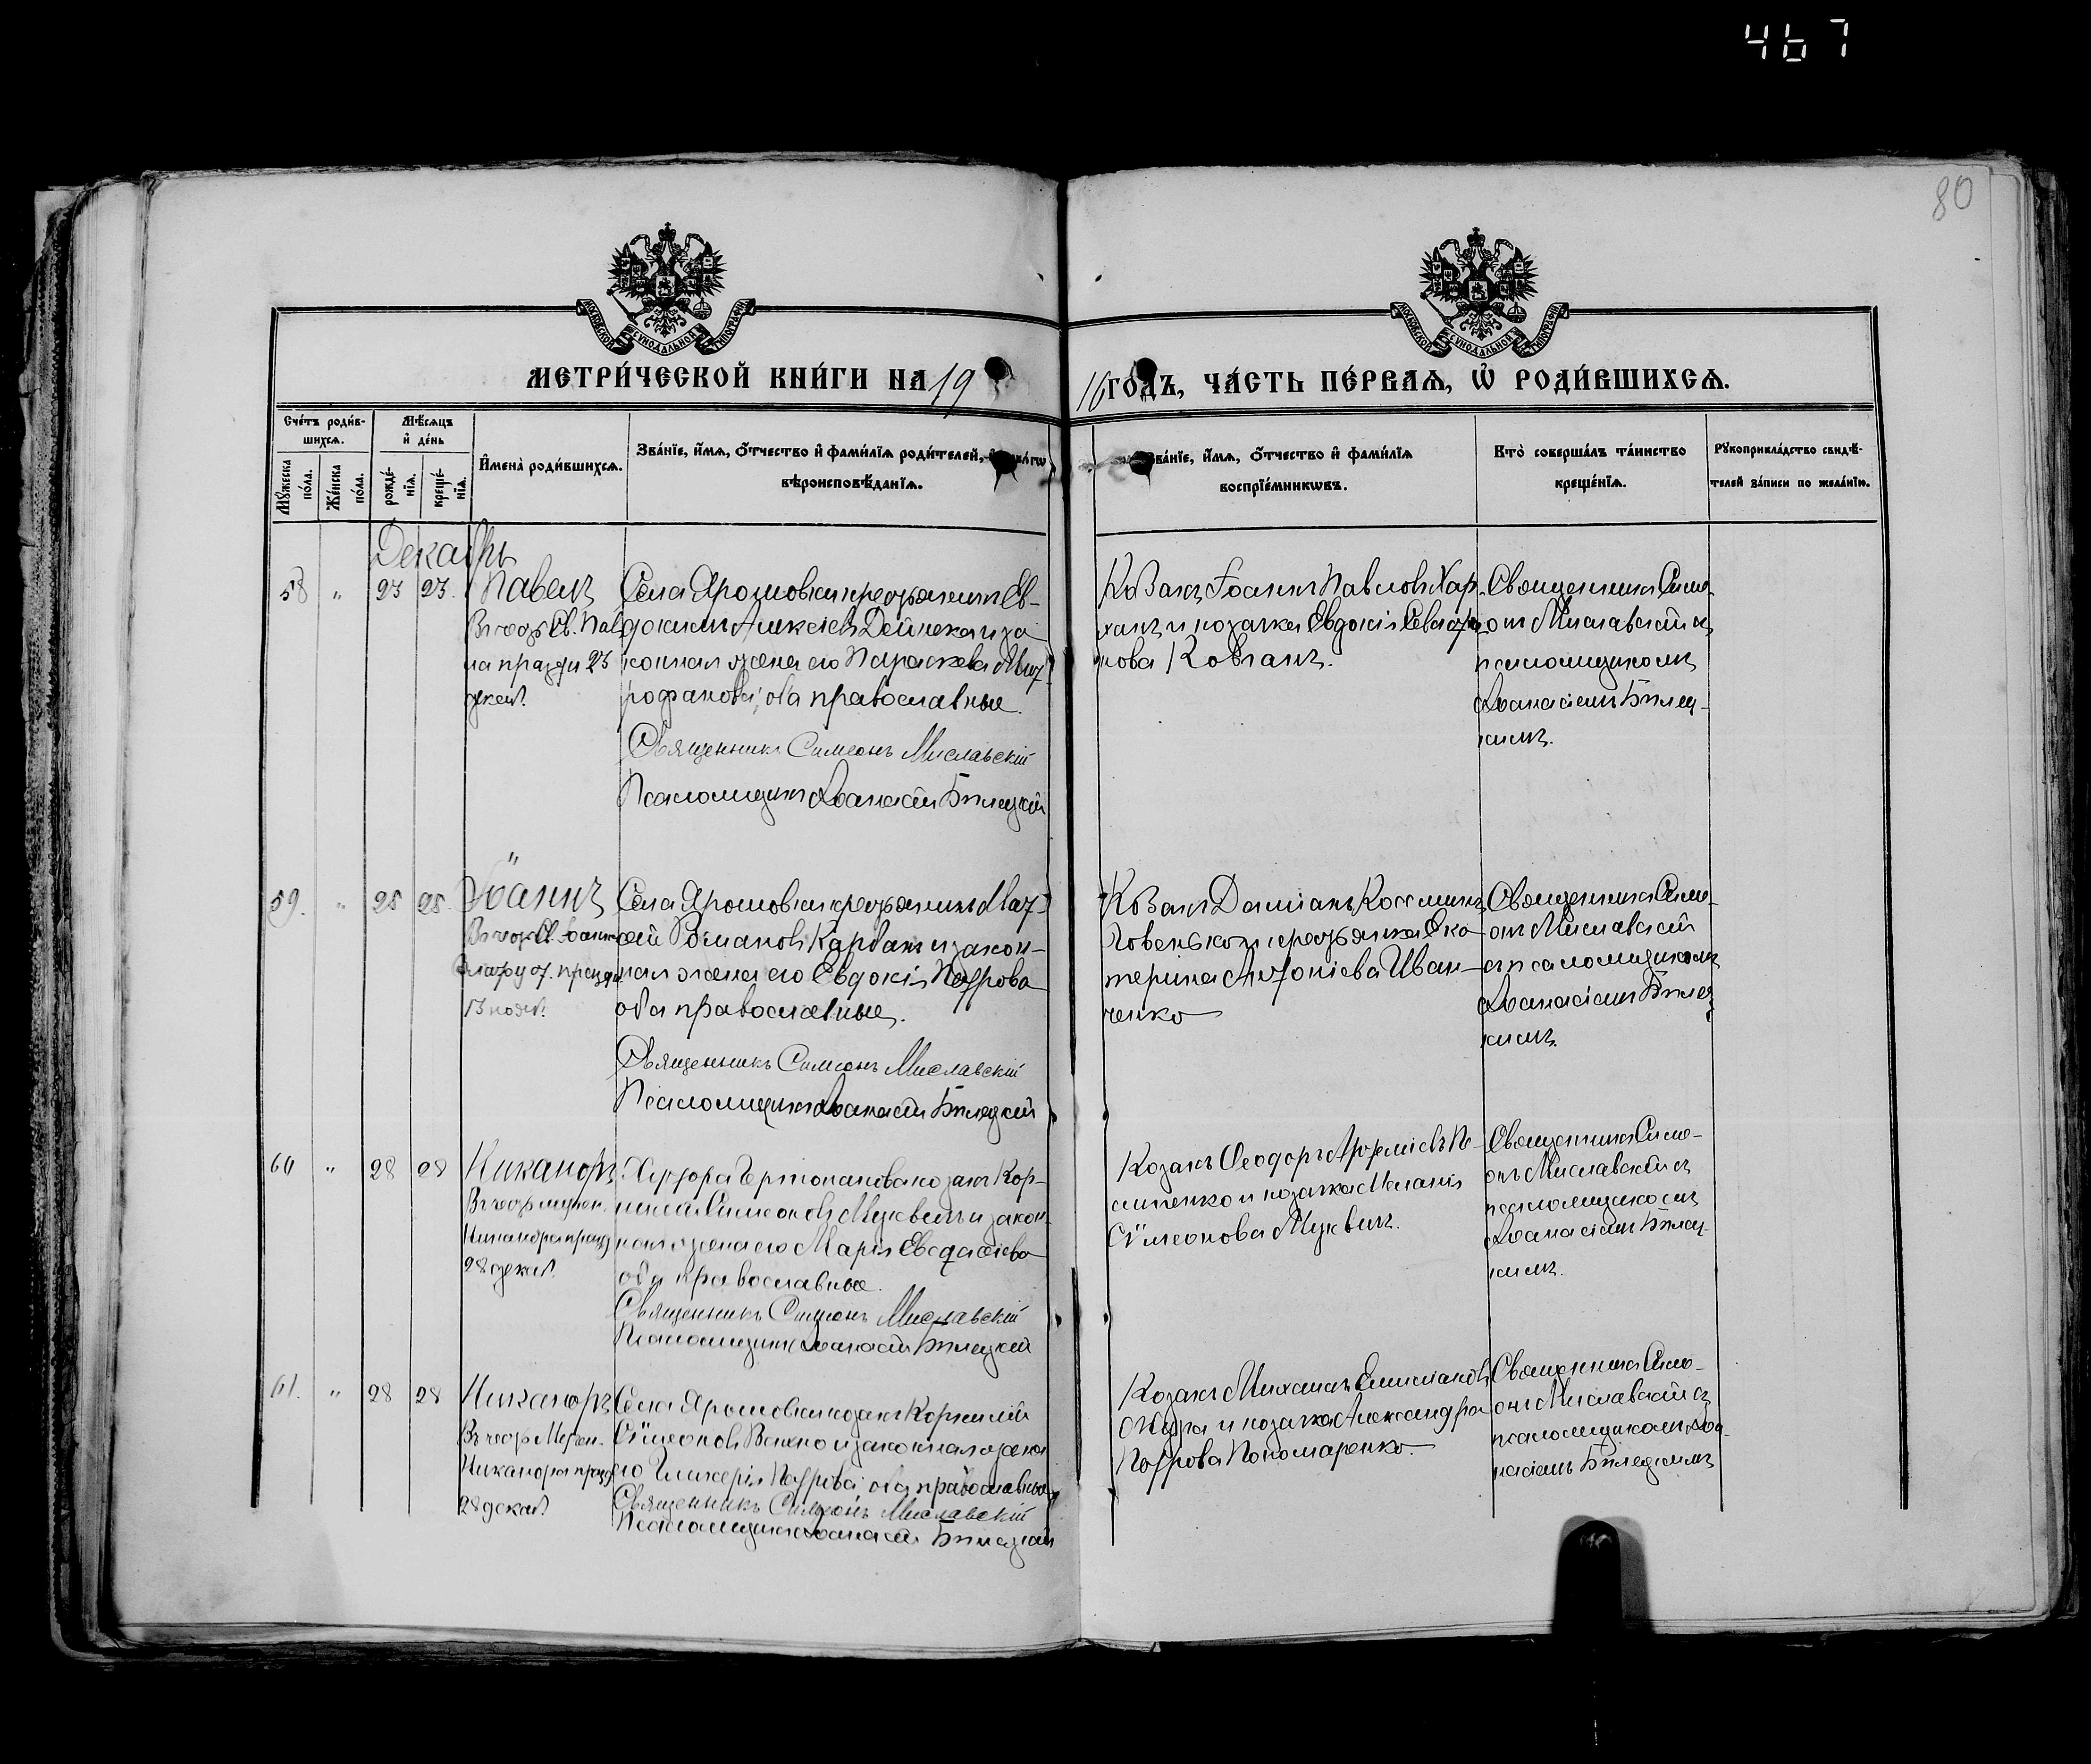 467
80
МОСКОВСКОЙ СУНОДАЛЬНОЙ ТИПОГРАФІИ
МОСКОВСКОЙ СУНОДАЛЬНОЙ ТИПОГРАФІИ
МЕТРИ́ЧЕСКОЙ КНИ́ГИ НА 19
16 ГОДЪ, ЧА́СТЬ ПЕ́РВАѦ, Ѽ РОДИ́ВШИХСѦ.
Сче́тъ роди́в-
шихсѧ.
Мꙋ́жеска по́ла.
Же́нска по́ла.
Мѣ́сѧцъ и҆ де́нь
рожде́-
нїѧ.
креще́-
нїѧ.
И҆мена̀ роди́вшихсѧ.
Зва́нїе, и҆́мѧ, ѻ҆́тчество и҆ фами́лїѧ роди́телей,
вѣроисповѣ́данїѧ.
Зва́нїе, и҆́мѧ, ѻ҆́тчество и҆ фами́лїѧ
воспрїе́мникѡвъ.
Кто̀ соверша́лъ та́инство
креще́нїѧ.
Рꙋкоприкла́дство свидѣ́-
телей за́писи по жела́нїю.
Декабрь
58 " 23 23. Павелъ
Въ честь Св. Пав
ла праздн 23
декаб.
Села Ярошовки крестьянинъ Ев-
докимъ Алексіевъ Дейнека и за
конная жена его Параскева Мит
рофанова; оба православные.
Священникъ Симеонъ Миславскій
Псаломщикъ Аѳанасій Билецкій
Козакъ Іоаннъ Павловъ Хар
ханъ и козачка Евдокія Севастья
нова Ковганъ.
Священникъ Симе-
онъ Миславскій съ
псаломщикомъ
Аѳанасіемъ Билец-
кимъ.
59. " 25 25. Іоаннъ
Въ честь Св. Іоанна
Златоуст. праздн.
13 нояб.
Села Ярошовки крестьянинъ Мат-
ѳей Романовъ Карбанъ и закон-
ная жена его Евдокія Петрова
оба православные.
Священникъ Симеонъ Миславскій
Псаломщикъ Аѳанасій Билецкій
Козакъ Даміанъ Косминъ
Говенько и крестьянка Ека
терина Антоніева Иван-
ченко
Священникъ Симе-
онъ Миславскій
съ псаломщикомъ
Аѳанасіемъ Билец
кимъ.
60 " 28 28 Никаноръ
Въ честь мучен.
Никанора празд
28 декаб.
Хутора козакъ Кор-
нилій Симеоновъ Муквичъ и закон-
ная жена его Марія
оба православные.
Священникъ Симеонъ Миславскій
Псаломщикъ Аѳанасій Билецкій
Козакъ Ѳеодоръ Артеміевъ По
сипенко и козачка Меланія
Сѷмеонова Муквичъ.
Священникъ Симе-
онъ Миславскій съ
псаломщикомъ
Аѳанасіемъ Билец-
кимъ.
61. " 28 28 Никаноръ
Въ честь Мучен.
Никанора празд
28 декаб.
Села Ярошовки козакъ Корнилій
Сѷмеоновъ и законная жена
его Гликерія Петрова; оба православные
Священникъ Симеонъ Миславскій
Псаломщикъ Аѳанасій Билецкій
Козакъ Михаилъ
и козачка Александра
Петрова Пономаренко.
Священникъ Симе-
онъ Миславскій съ
псаломщикомъ Аѳа-
насіемъ Билецкимъ